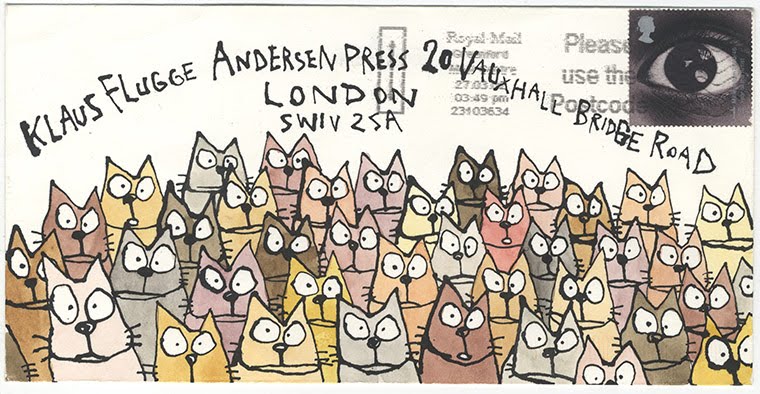 KLAUS FLUGGE ANDERSEN PRESS 20 VAUXHALL BRIDGE ROAD
LONDON
SW1V 2SA
Royal Mail
Greenford
27.03
03:49 pm
23103634
Please
use the
Postcode